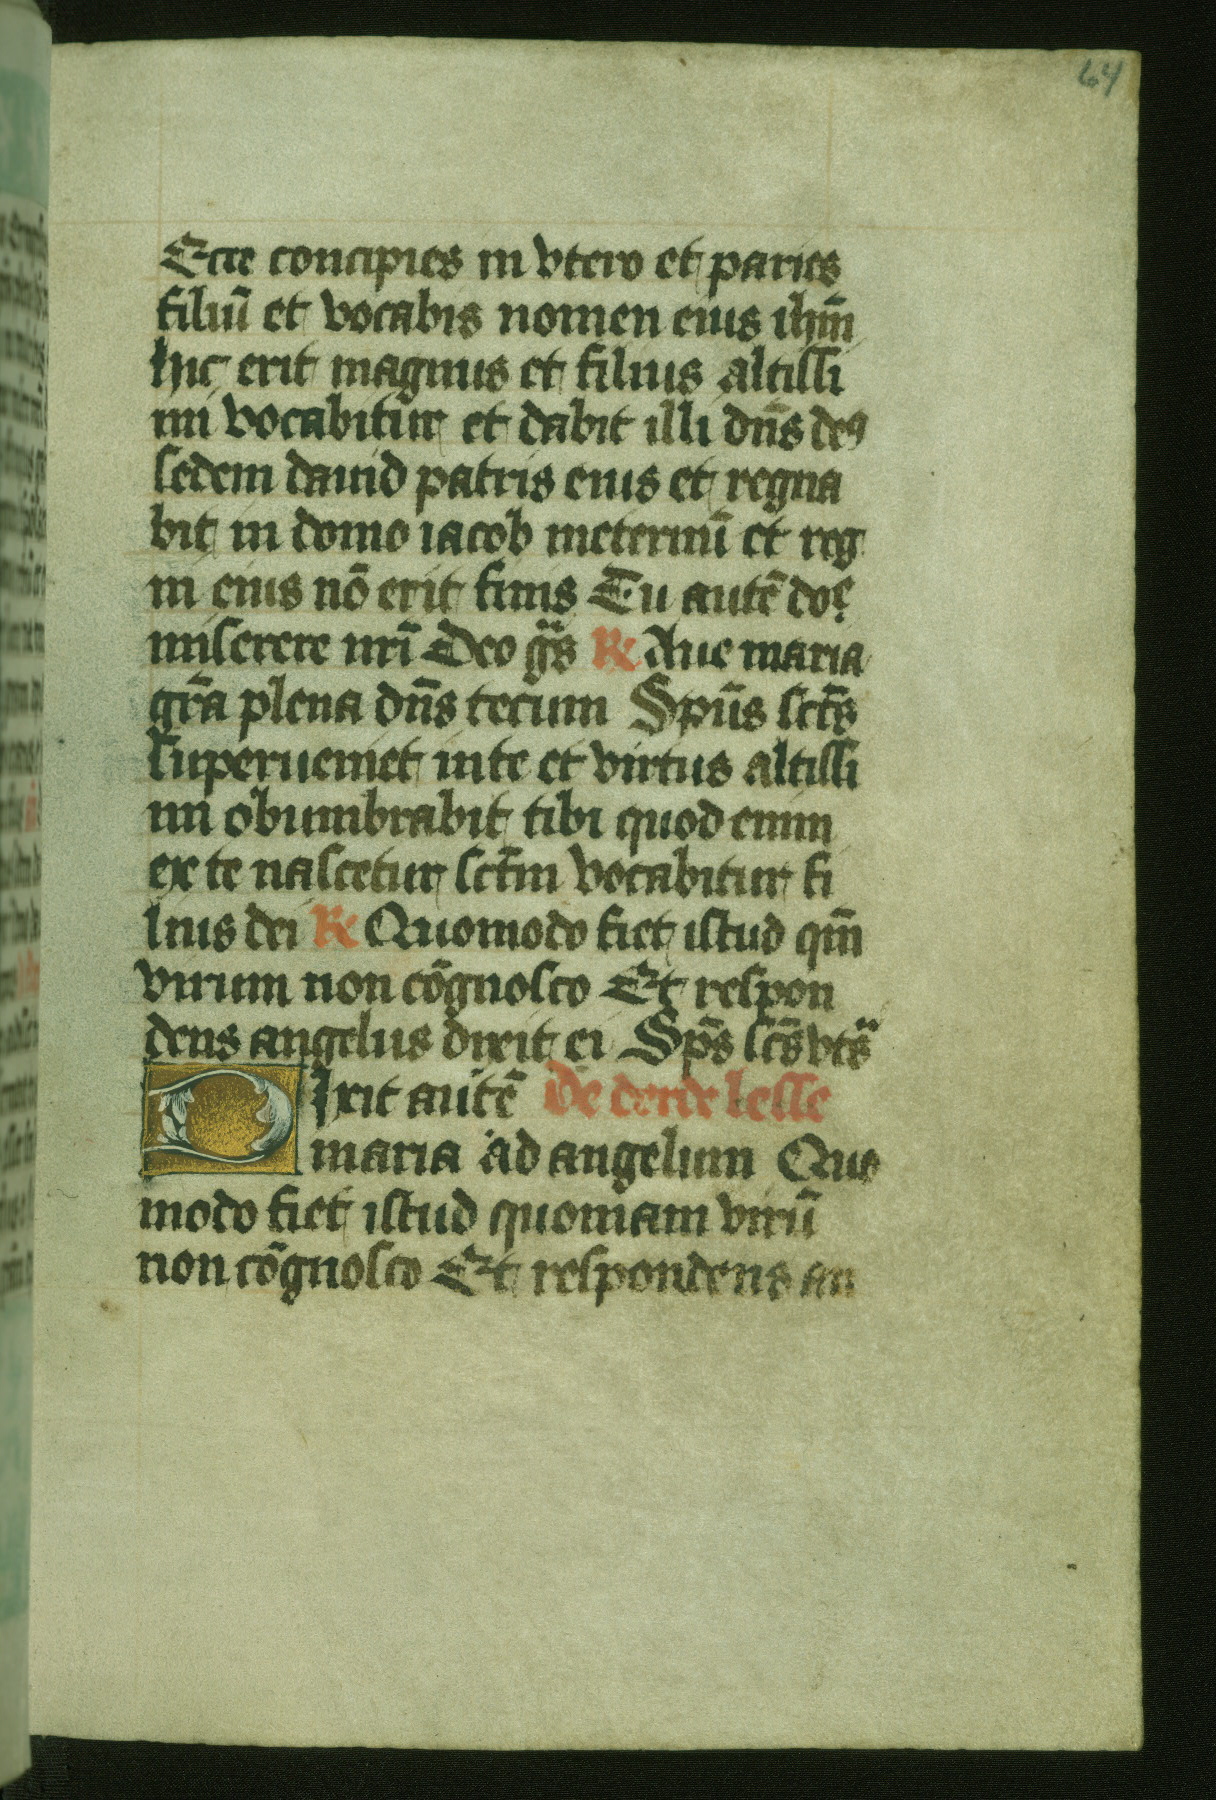 64
Ecce concipies in vtero et paries
filiū et vocabis nomen eius ihm̄
hic erit magnus et filius altissi
mi vocabitur et dabit illi dn̄s deꝯ
sedem dauid patris eius et regna
bit in domo iacob ineternū et reg
ni eius nō erit finis Tu autē do
miserere nr̄i Deo gr̄s ℟ Aue maria
gr̄a plena dn̄s tecum Spūs sct̄s
superueniet inte et virtus altissi
mi obumbrabit tibi quod enim
ex te nascetur sct̄m vocabitur fi
lius dei ℟ Quomodo fiet istud qm̄
virum non cōgnosco Et respon
dens angelus dixit ei Sp̄s sc̄s vts̄
Dixit autē De derde lesse
maria ad angelum Quo
modo fiet istud quoniam virū
non cōgnosco Et respondens an